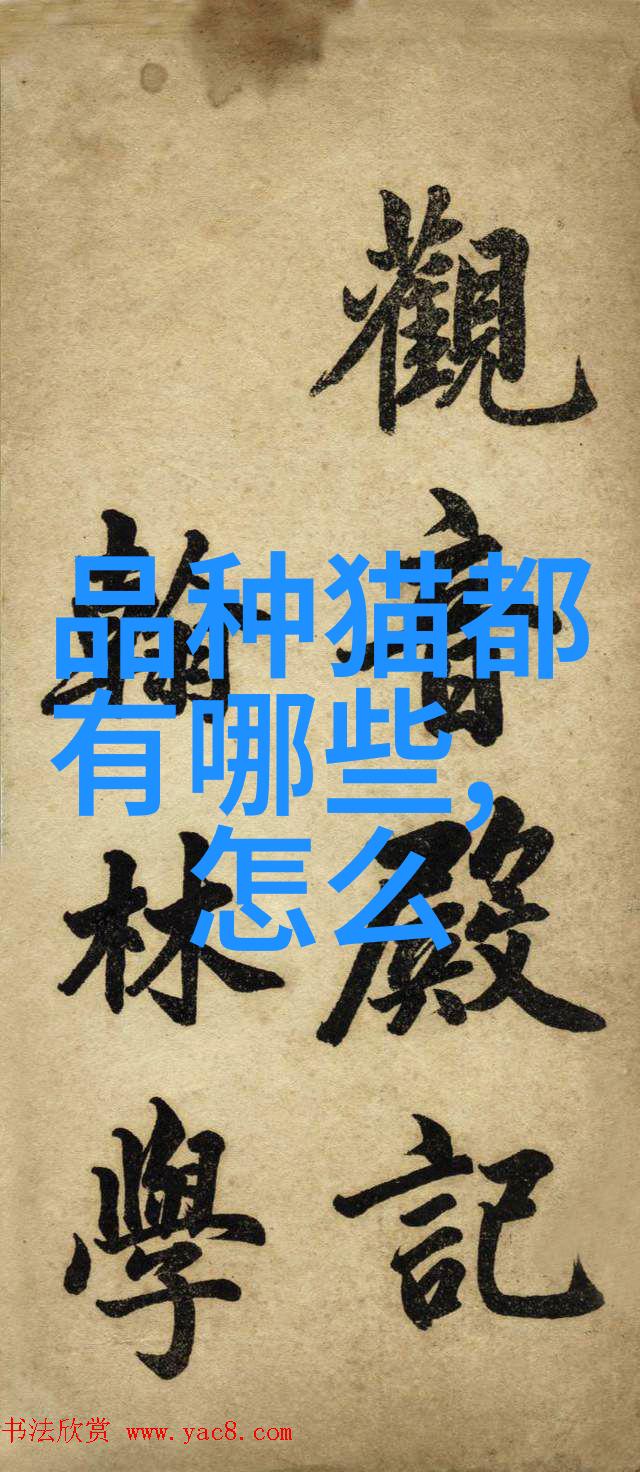 觀音殿記
翰林學
品种猫都
有哪些,
怎么
书法欣赏 www.yac8.com